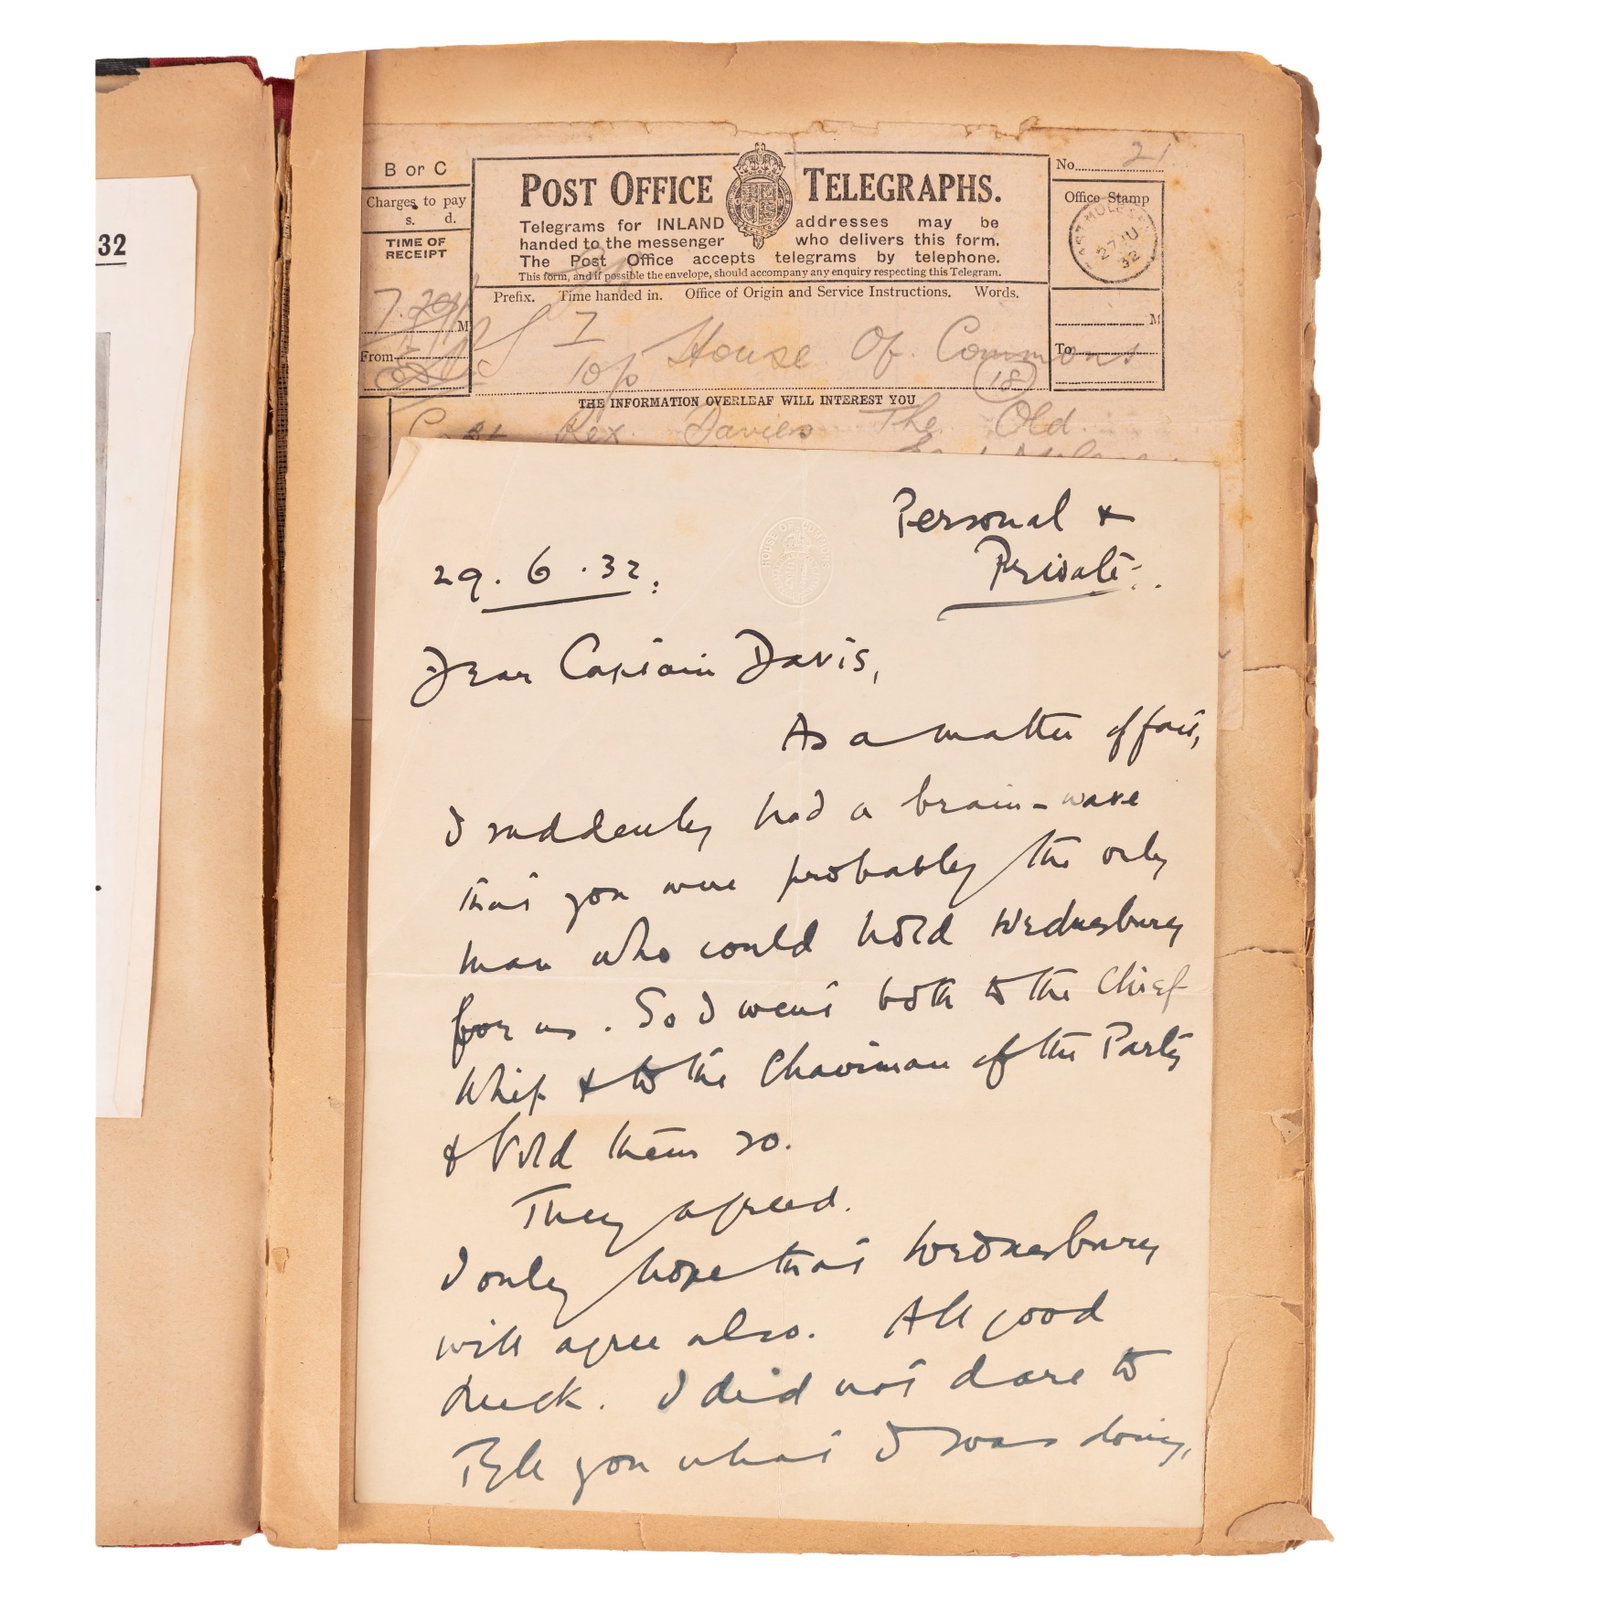 32
B or C
Charges to pay
s. d.
TIME OF
RECEIPT
7.20
M
From
POST OFFICE TELEGRAPHS.
Telegrams for INLAND addresses may be
handed to the messenger who delivers this form.
The Post Office accepts telegrams by telephone.
This form, and if possible the envelope, should accompany any enquiry respecting this Telegram.
Prefix. Time handed in. Office of Origin and Service Instructions. Words.
7
10p House Of Commons
18
No. 21
Office Stamp
27 JU
32
M
To
THE INFORMATION OVERLEAF WILL INTEREST YOU
Capt Rex Davies The Old
HOUSE OF COMMONS
Personal +
Private.
29.6.32.
Dear Captain Davis,
As a matter of fact,
I suddenly had a brain-wave
that you were probably the only
man who could hold Wednesbury
for us. So I went both to the Chief
Whip + to the Chairman of the Party
+ told them so.
They agreed.
I only hope that Wednesbury
will agree also. All good
luck. I did not dare to
Tell you what I was doing,